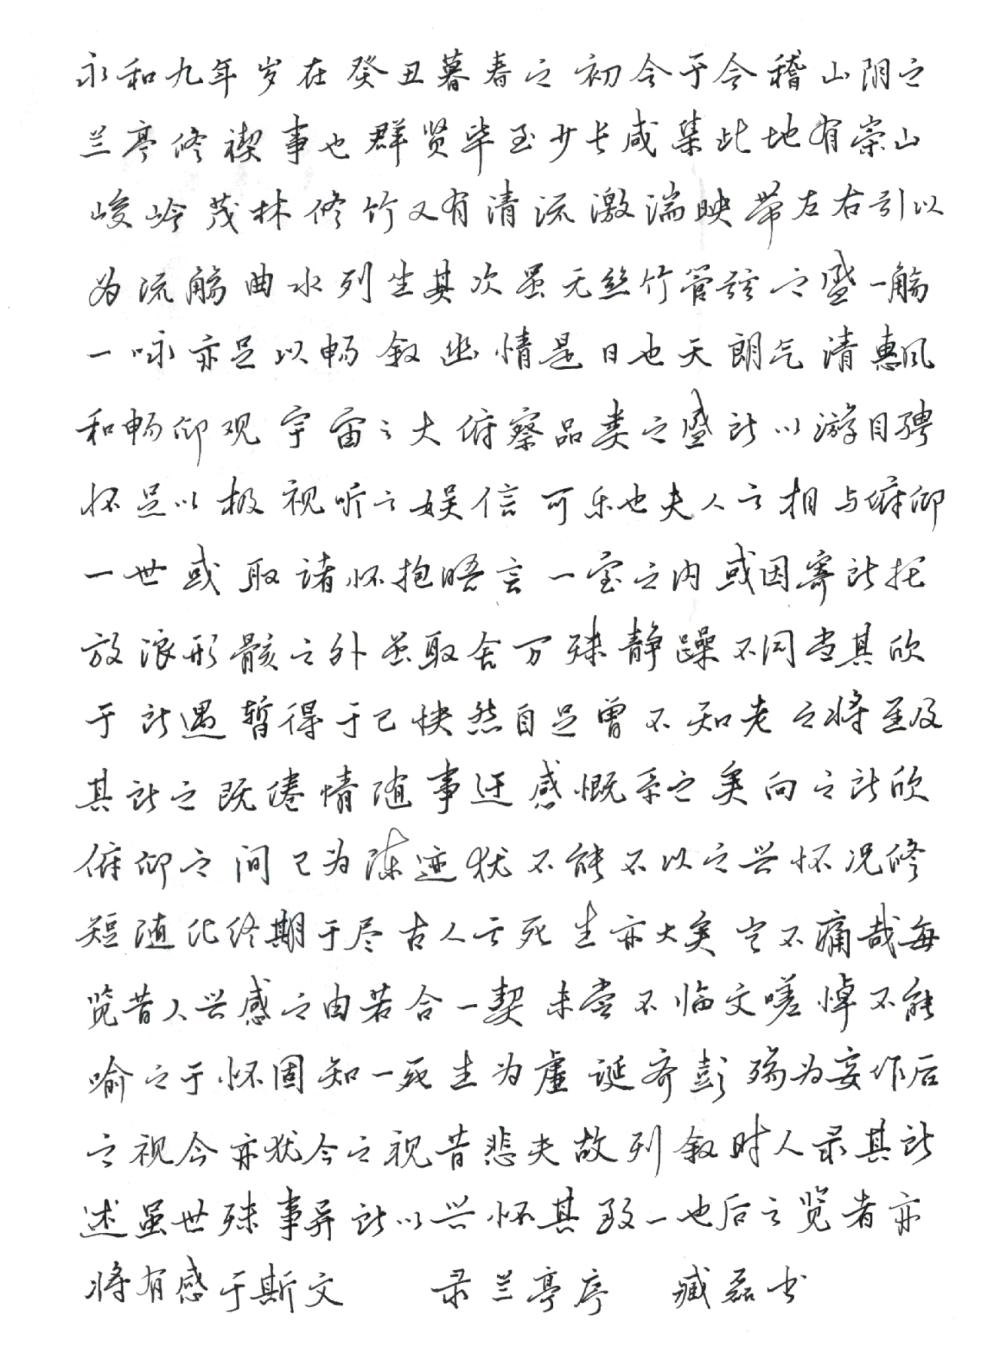 永和九年岁在癸丑暮春之初会于会稽山阴之
兰亭修禊事也群贤毕至少长咸集此地有崇山
峻岭茂林修竹又有清流激湍映带左右引以
为流觞曲水列坐其次虽无丝竹管弦之盛一觞
一咏亦足以畅叙幽情是日也天朗气清惠风
和畅仰观宇宙之大俯察品类之盛所以游目骋
怀足以极视听之娱信可乐也夫人之相与俯仰
一世或取诸怀抱晤言一室之内或因寄所托
放浪形骸之外虽取舍万殊静躁不同当其欣
于所遇暂得于己快然自足曾不知老之将至及
其所之既倦情随事迁感慨系之矣向之所欣
俯仰之间已为陈迹犹不能不以之兴怀况修
短随化终期于尽古人云死生亦大矣岂不痛哉每
览昔人兴感之由若合一契未尝不临文嗟悼不能
喻之于怀固知一死生为虚诞齐彭殇为妄作后
之视今亦犹今之视昔悲夫故列叙时人录其所
述虽世殊事异所以兴怀其致一也后之览者亦
将有感于斯文 录兰亭序 臧磊书